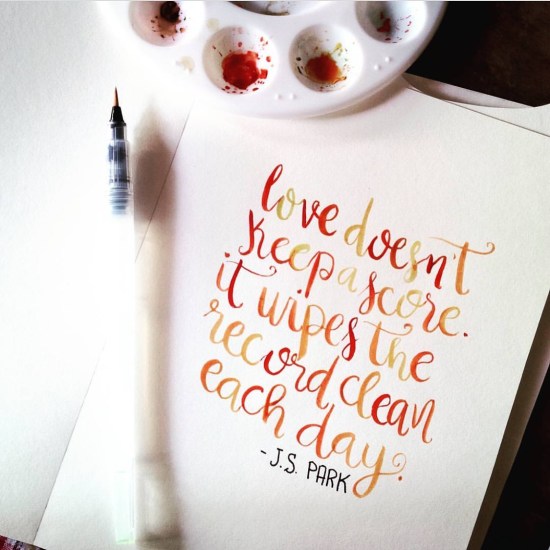 love doesn't
keep a score.
it wipes the
record clean
each day.
- J.S. PARK